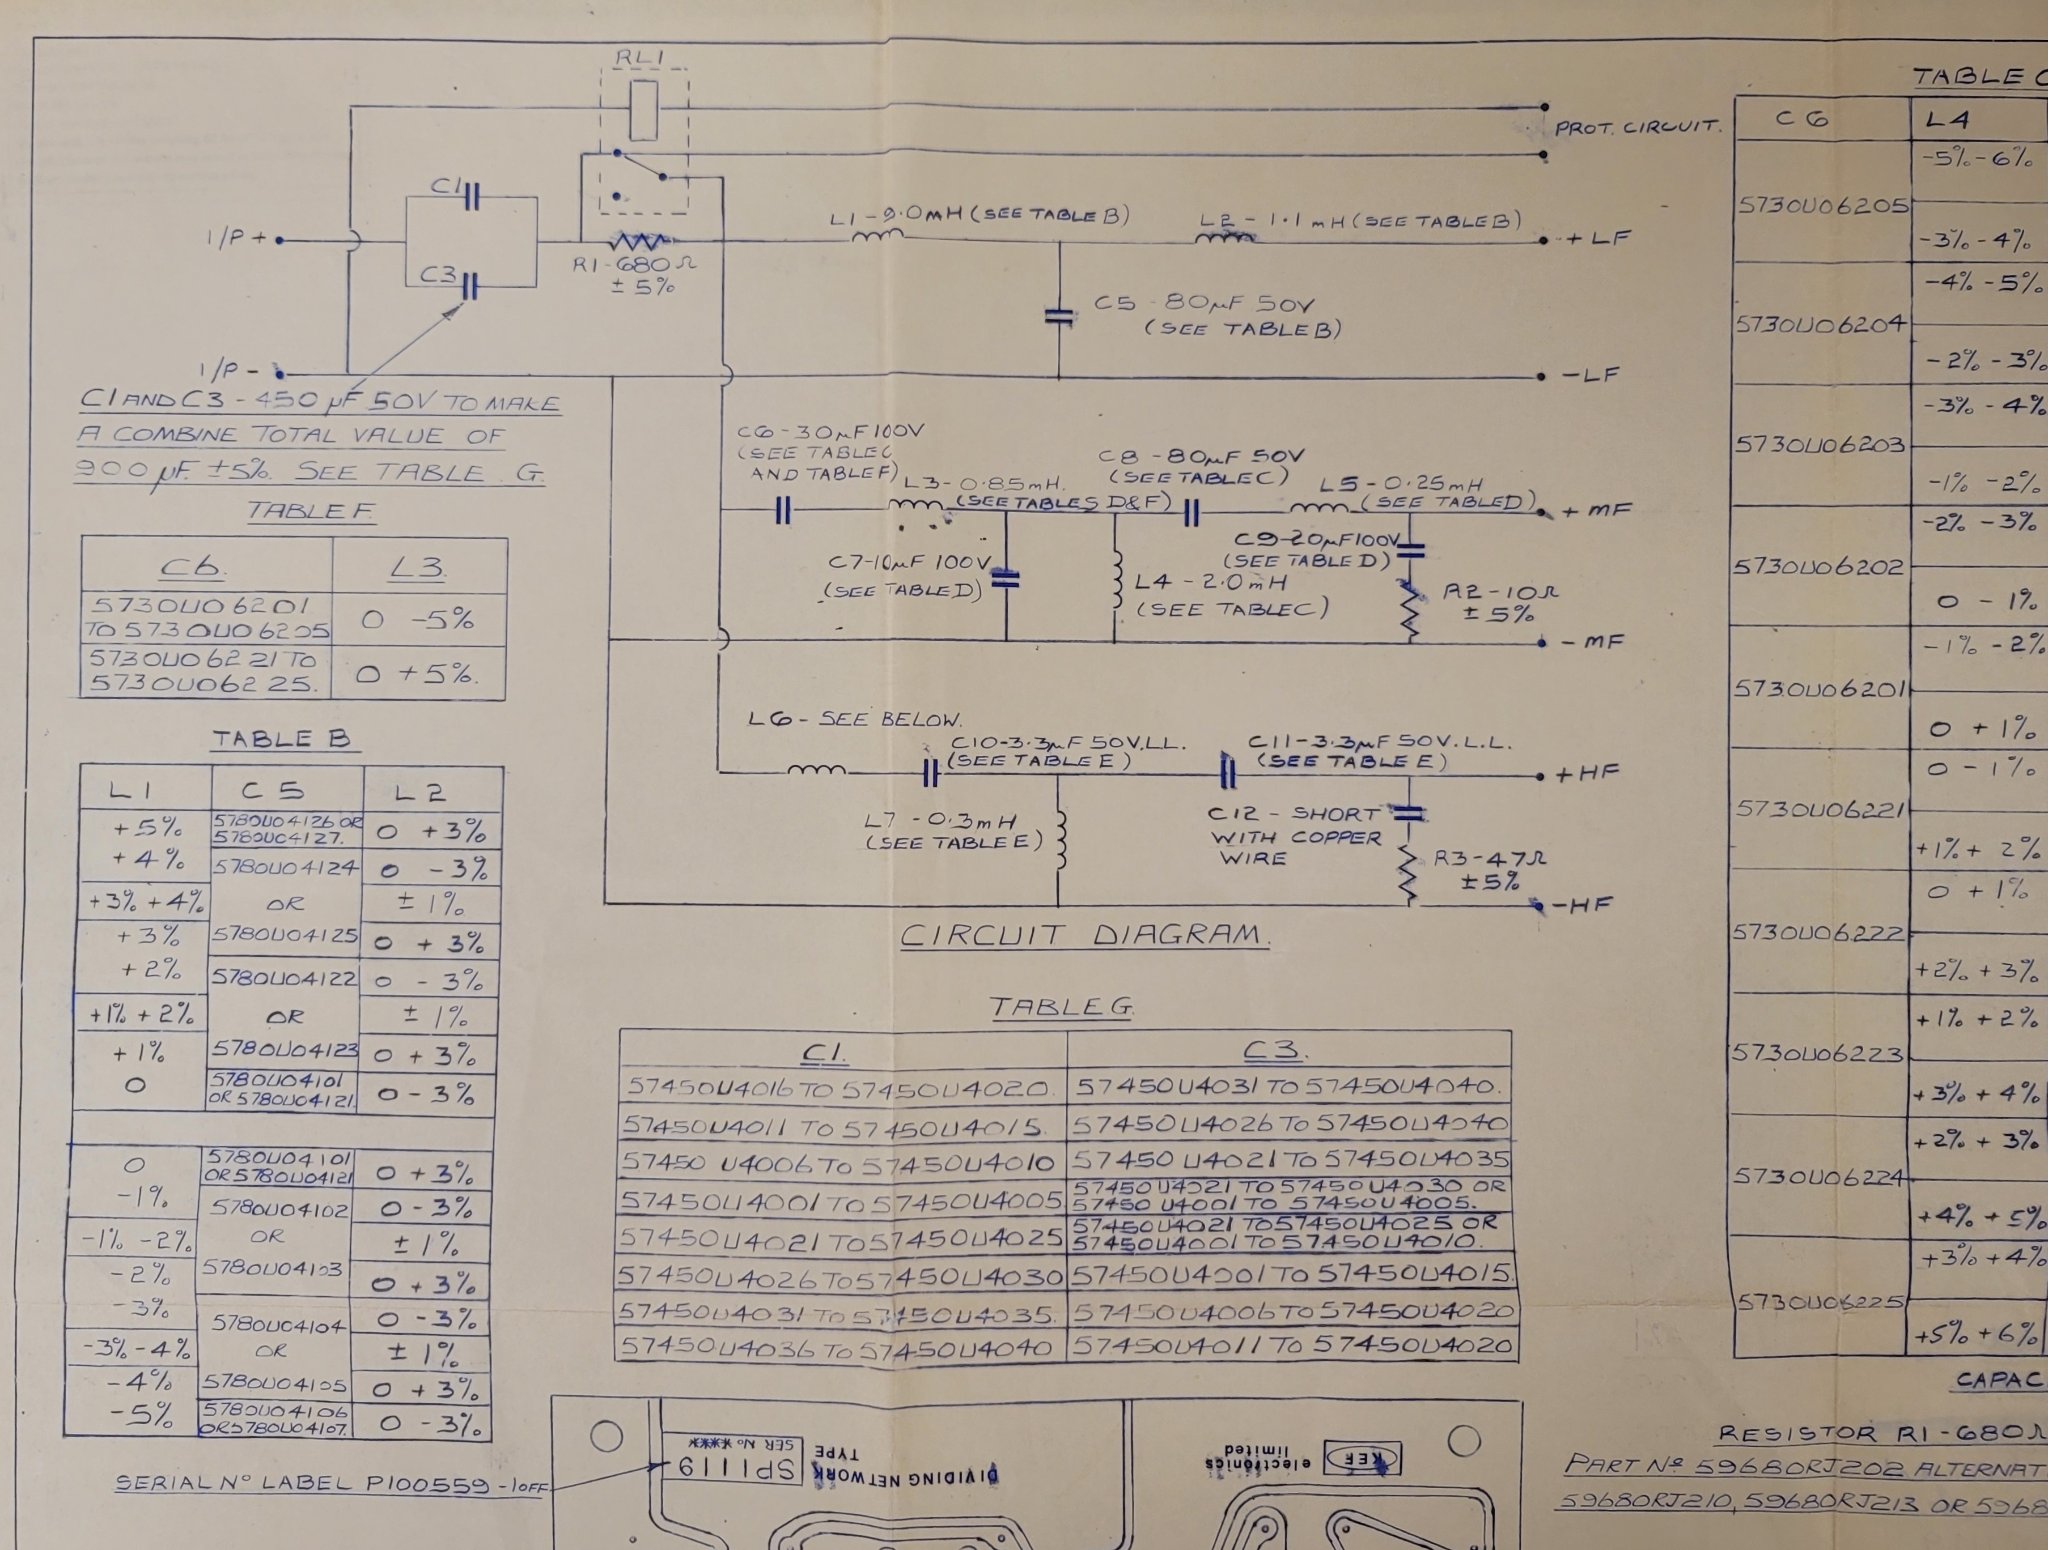 RL1
PROT. CIRCUIT.
C1
I/P +
C3
R1-680Ω
± 5%
L1-9.0mH (SEE TABLE B)
L2-1.1mH (SEE TABLE B)
+ LF
C5-80µF 50V
(SEE TABLE B)
I/P -
- LF
C1 AND C3 - 450 µF 50V TO MAKE
A COMBINE TOTAL VALUE OF
900 µF. ±5%. SEE TABLE G.
C6-30µF 100V
(SEE TABLE C
AND TABLE F)
L3-0.85mH.
(SEE TABLES D&F)
C8-80µF 50V
(SEE TABLE C)
L5-0.25mH
(SEE TABLE D)
+ MF
C7-10µF 100V
(SEE TABLE D)
L4-2.0mH
(SEE TABLE C)
C9-20µF 100V
(SEE TABLE D)
R2-10Ω
± 5%
- MF
L6- SEE BELOW.
C10-3.3µF 50V.LL.
(SEE TABLE E)
C11-3.3µF 50V.L.L.
(SEE TABLE E)
+HF
L7-0.3mH
(SEE TABLE E)
C12-SHORT
WITH COPPER
WIRE
R3-47Ω
±5%
-HF
CIRCUIT DIAGRAM.
TABLE F.
C6. L3.
5730U06201
TO 5730U06205 0 -5%
5730U06221 TO
5730U06225. 0 +5%.
TABLE B
L1 C5 L2
+5% 5780U04126 OR
5780U04127. 0 +3%
+4% 5780U04124 0 -3%
+3% +4% OR ± 1%
+3% 5780U04125 0 +3%
+2% 5780U04122 0 -3%
+1% +2% OR ± 1%
+1% 5780U04123 0 +3%
0 5780U04101
OR 5780U04121. 0 -3%
0 5780U04101
OR 5780U04121 0 +3%
-1% 5780U04102 0 -3%
-1% -2% OR ± 1%
-2% 5780U04103 0 +3%
-3% 5780U04104 0 -3%
-3% -4% OR ± 1%
-4% 5780U04105 0 +3%
-5% 5780U04106
OR 5780U04107. 0 -3%
TABLE G.
C1. C3.
57450U4016 TO 57450U4020. 57450U4031 TO 57450U4040.
57450U4011 TO 57450U4015. 57450U4026 TO 57450U4040
57450 U4006 TO 57450U4010 57450 U4021 TO 57450U4035
57450U4001 TO 57450U4005 57450U4021 TO 57450U4030 OR
57450 U4001 TO 57450U4005.
57450U4021 TO 57450U4025 57450U4021 TO 57450U4025 OR
57450U4001 TO 57450U4010.
57450U4026 TO 57450U4030 57450U4001 TO 57450U4015.
57450U4031 TO 57450U4035. 57450U4006 TO 57450U4020
57450U4036 TO 57450U4040 57450U4011 TO 57450U4020
TABLE C
C6 L4
5730U06205 -5% -6%
-3% -4%
5730U06204 -4% -5%
-2% -3%
5730U06203 -3% -4%
-1% -2%
5730U06202 -2% -3%
0 -1%
5730U06201 -1% -2%
0 +1%
5730U06221 0 -1%
+1% + 2%
5730U06222 0 +1%
+2% +3%
5730U06223 +1% +2%
+3% +4%
5730U06224 +2% +3%
+4% +5%
5730U06225 +3% +4%
+5% +6%
CAPAC
RESISTOR R1-680Ω
PART Nº 59680RJ202 ALTERNAT
59680RJ210, 59680RJ213 OR 5968
SERIAL Nº LABEL P100559 -1 OFF
SP1119
SER Nº ****
TYPE
DIVIDING NETWORK
KEF
electronics
limited